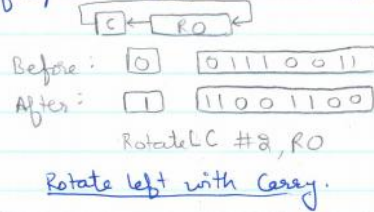 C RO
Before: 0 0 1 1 1 0 0 1 1
After: 1 1 1 0 0 1 1 0 0
RotateLC #2, RO
Rotate left with Carry.